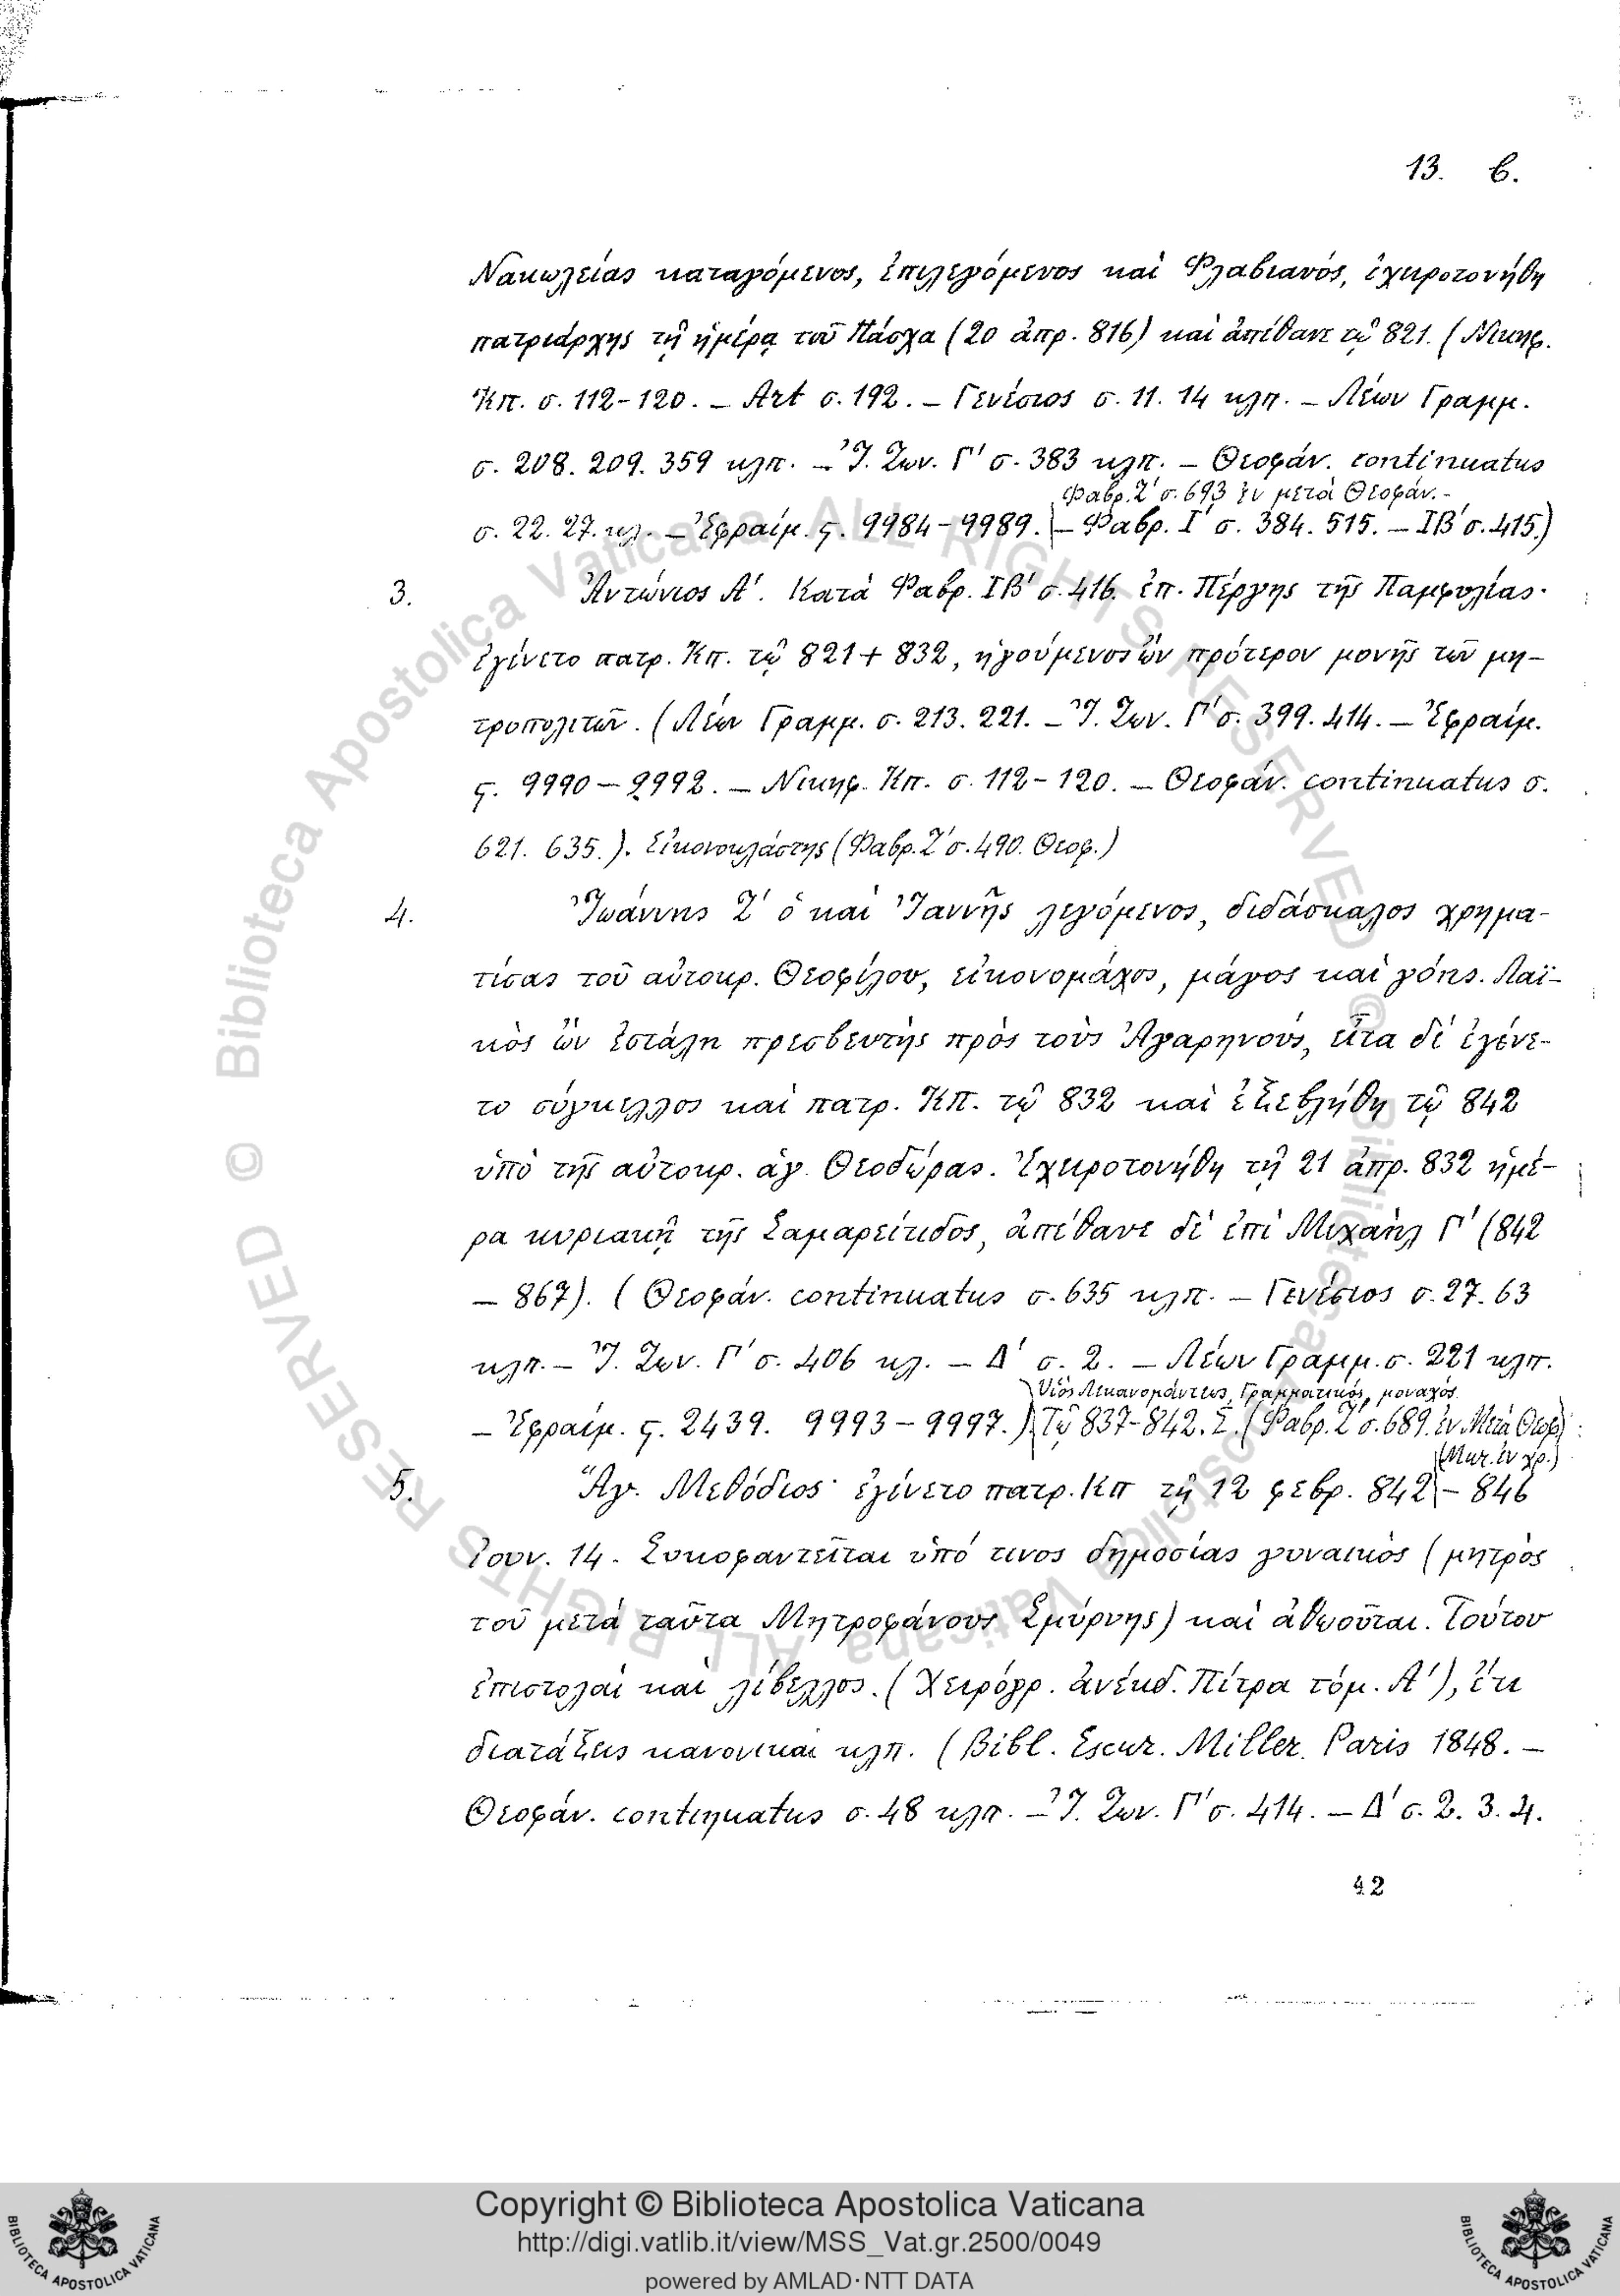 13. β.
Νακωλείας καταγόμενος, ἐπιλεγόμενος καὶ Φλαβιανός, ἐχειροτονήθη
πατριάρχης τῇ ἡμέρᾳ τοῦ Πάσχα (20 ἀπρ. 816) καὶ ἀπέθανε τῷ 821. (Νικηφ.
Κπ. σ. 112-120. – Art σ. 192. – Γενέσιος σ. 11. 14 κλπ. – Λέων Γραμμ.
σ. 208. 209. 359 κλπ. – Ἰ. Ζων. Γ΄ σ. 383 κλπ. – Θεοφάν. continuatus
Φαβρ. Ζ΄ σ. 693 ἐν μετὰ Θεοφάν. -
σ. 22. 27. κλ. – Ἐφραίμ. ς. 9984-9989. – Φαβρ. Ι΄ σ. 384. 515. – ΙΒ΄ σ. 415.)
3. Ἀντώνιος Α΄. Κατὰ Φαβρ. ΙΒ΄ σ. 416. ἐπ. Πέργης τῆς Παμφυλίας·
ἐγίνετο πατρ. Κπ. τῷ 821 + 832, ἡγούμενος ὢν πρότερον μονῆς τῶν μη-
τροπολιτῶν. (Λέων Γραμμ. σ. 213. 221. – Ἰ. Ζων. Γ΄ σ. 399. 414. – Ἐφραίμ.
ς. 9990 – 9992. – Νικηφ. Κπ. σ. 112-120. – Θεοφάν. continuatus σ.
621. 635.). Εἰκονοκλάστης (Φαβρ. Ζ΄ σ. 490. Θεοφ.)
4. Ἰωάννης Ζ΄ ὁ καὶ Ἰαννῆς λεγόμενος, διδάσκαλος χρημα-
τίσας τοῦ αὐτοκρ. Θεοφίλου, εἰκονομάχος, μάγος καὶ γόης. Λαϊ-
κὸς ὢν ἐστάλη πρεσβευτὴς πρὸς τοὺς Ἀγαρηνούς, εἶτα δὲ ἐγένε-
το σύγκελλος καὶ πατρ. ΚΠ. τῷ 832 καὶ ἐξεβλήθη τῷ 842
ὑπὸ τῆς αὐτοκρ. ἁγ. Θεοδώρας. Ἐχειροτονήθη τῇ 21 ἀπρ. 832 ἡμέ-
ρᾳ κυριακῇ τῆς Σαμαρείτιδος, ἀπέθανε δὲ ἐπὶ Μιχαὴλ Γ΄ (842
– 867). (Θεοφάν. continuatus σ. 635 κλπ. – Γενέσιος σ. 27. 63
κλπ. – Ἰ. Ζων. Γ΄ σ. 406 κλ. – Δ΄ σ. 2. – Λέων Γραμμ. σ. 221 κλπ.
Υἱὸς Λεκανομάντεως, Γραμματικός, μοναχός.
– Ἐφραίμ. ς. 2439. 9993 – 9997.) Τῷ 837-842. Σ. (Φαβρ. Ζ΄ σ. 689. ἐν Μετὰ Θεοφ)
5. Ἅγ. Μεθόδιος· ἐγίνετο πατρ. ΚΠ τῇ 12 φεβρ. 842 – 846
Ἰουν. 14. Συκοφαντεῖται ὑπό τινος δημοσίας γυναικὸς (μητρὸς
τοῦ μετὰ ταῦτα Μητροφάνους Σμύρνης) καὶ ἀθωοῦται. Τούτου
ἐπιστολαὶ καὶ λίβελλος. (Χειρόγρ. ἀνέκδ. Πίτρα τόμ. Α΄), ἔτι
διατάξεις κανονικαὶ κλπ. (Bibl. Escur. Miller. Paris 1848. –
Θεοφάν. continuatus σ. 48 κλπ. – Ἰ. Ζων. Γ΄ σ. 414. – Δ΄ σ. 2. 3. 4.
42
Copyright © Biblioteca Apostolica Vaticana
http://digi.vatlib.it/view/MSS_Vat.gr.2500/0049
powered by AMLAD·NTT DATA